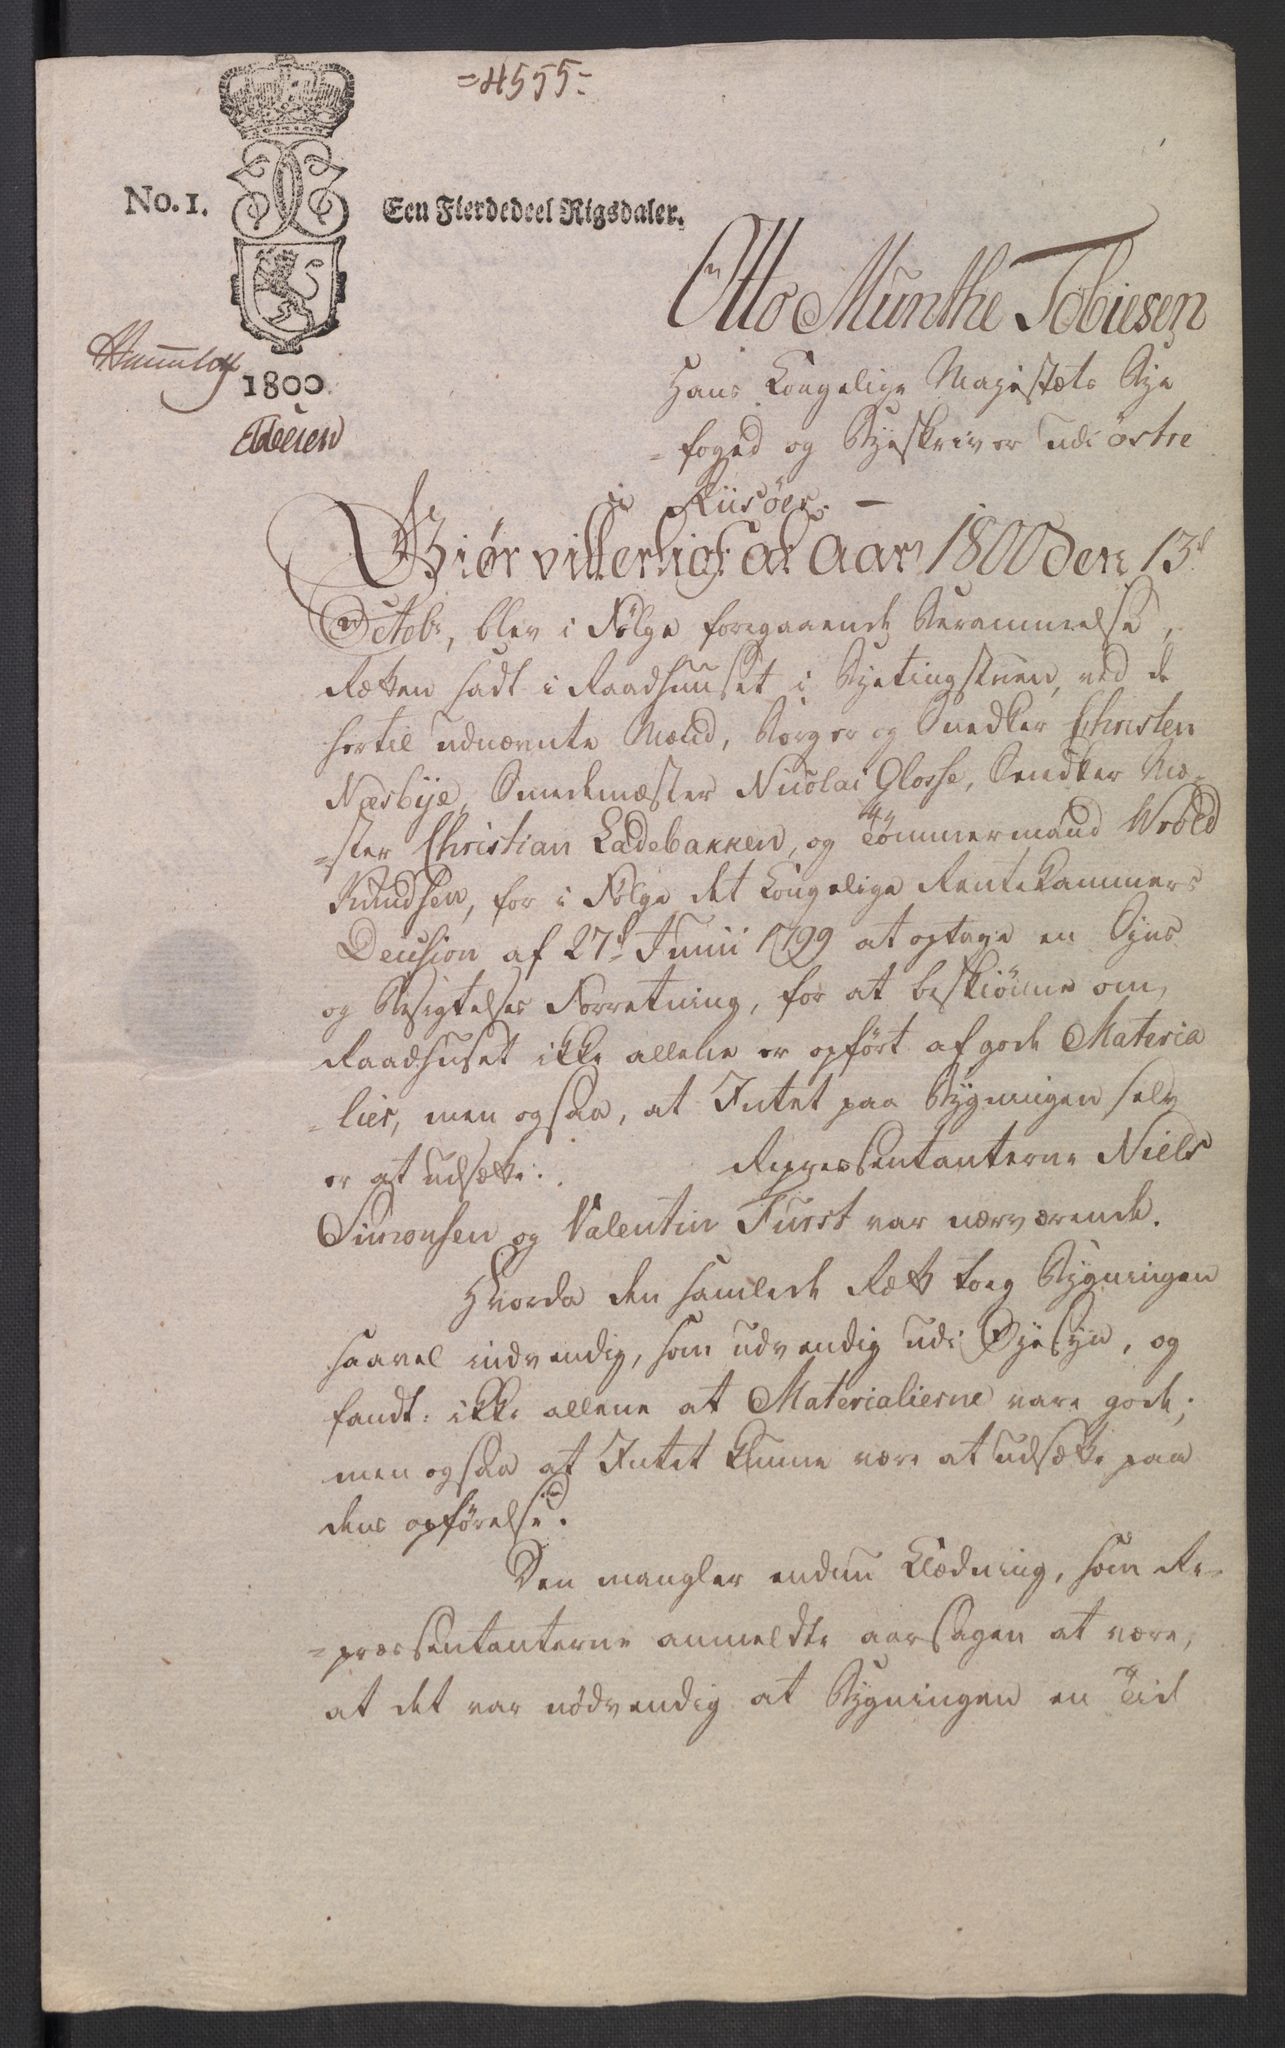 =4555=
No. 1.
Een Fierdedeel Rigsdaler.
1800.
Otto Munthe Tobiesen
Hans Kongelige Majestæts Bye
=foged og Byeskriver udi östre
Riisöer. —
Giör vitterligt at Aar 1800 den 13d
Octobr, blev i Følge foregaaende Berammelse,
Retten sadt i Raadhuuset i Byetingstuen, ved de
hertil udnævnte Mænd, Borger og Snedker Christen
Næsbije, Smedemæster Nicolai Glosse, Snedker Mæ-
=ster Christian Ladebakken, og Tömmermand Wrold
Knudsen, for i Følge det Kongelige Rentekammers
Decision af 27d Junii 1799 at optage en Syns
og Besigtelses Forretning, for at beskiönne om,
Raadhuset ikke allene er opfört af gode Materia
=lier, men ogsaa, at Intet paa Bygningen selv
er at udsætte. Repræsentanterne Niels
Simonsen og Valentin Furst var nærværende.
Hvorda den samlede Ræt toeg Bygningen
saavel indvendig, som udvendig udi Øyesyn, og
fandt: ikke allene at Materialierne vare gode;
men ogsaa at Intet kunne være at udsætte paa
dens opførelse.
Den mangler endnu Klædning, som Re-
=præsentanterne anmeldte aarsagen at være,
at det var nödvendig at Bygningen en Tid